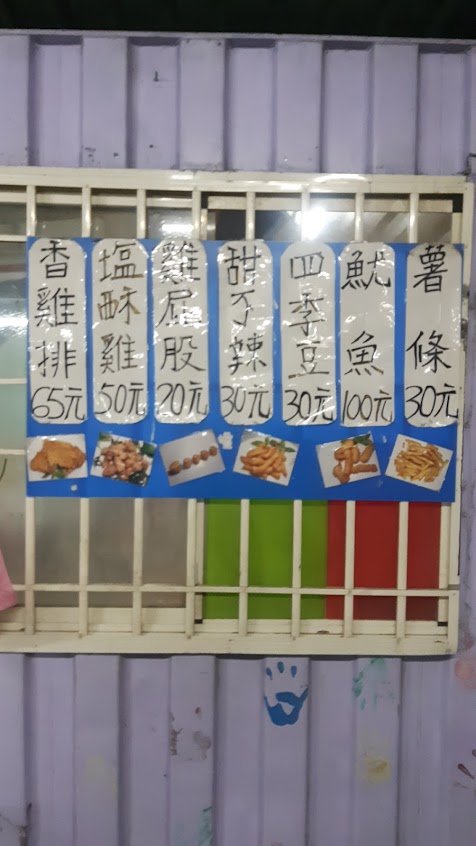 薯條30元
魷魚100元
四季豆30元
甜不辣30元
雞屁股20元
塩酥雞50元
香雞排65元